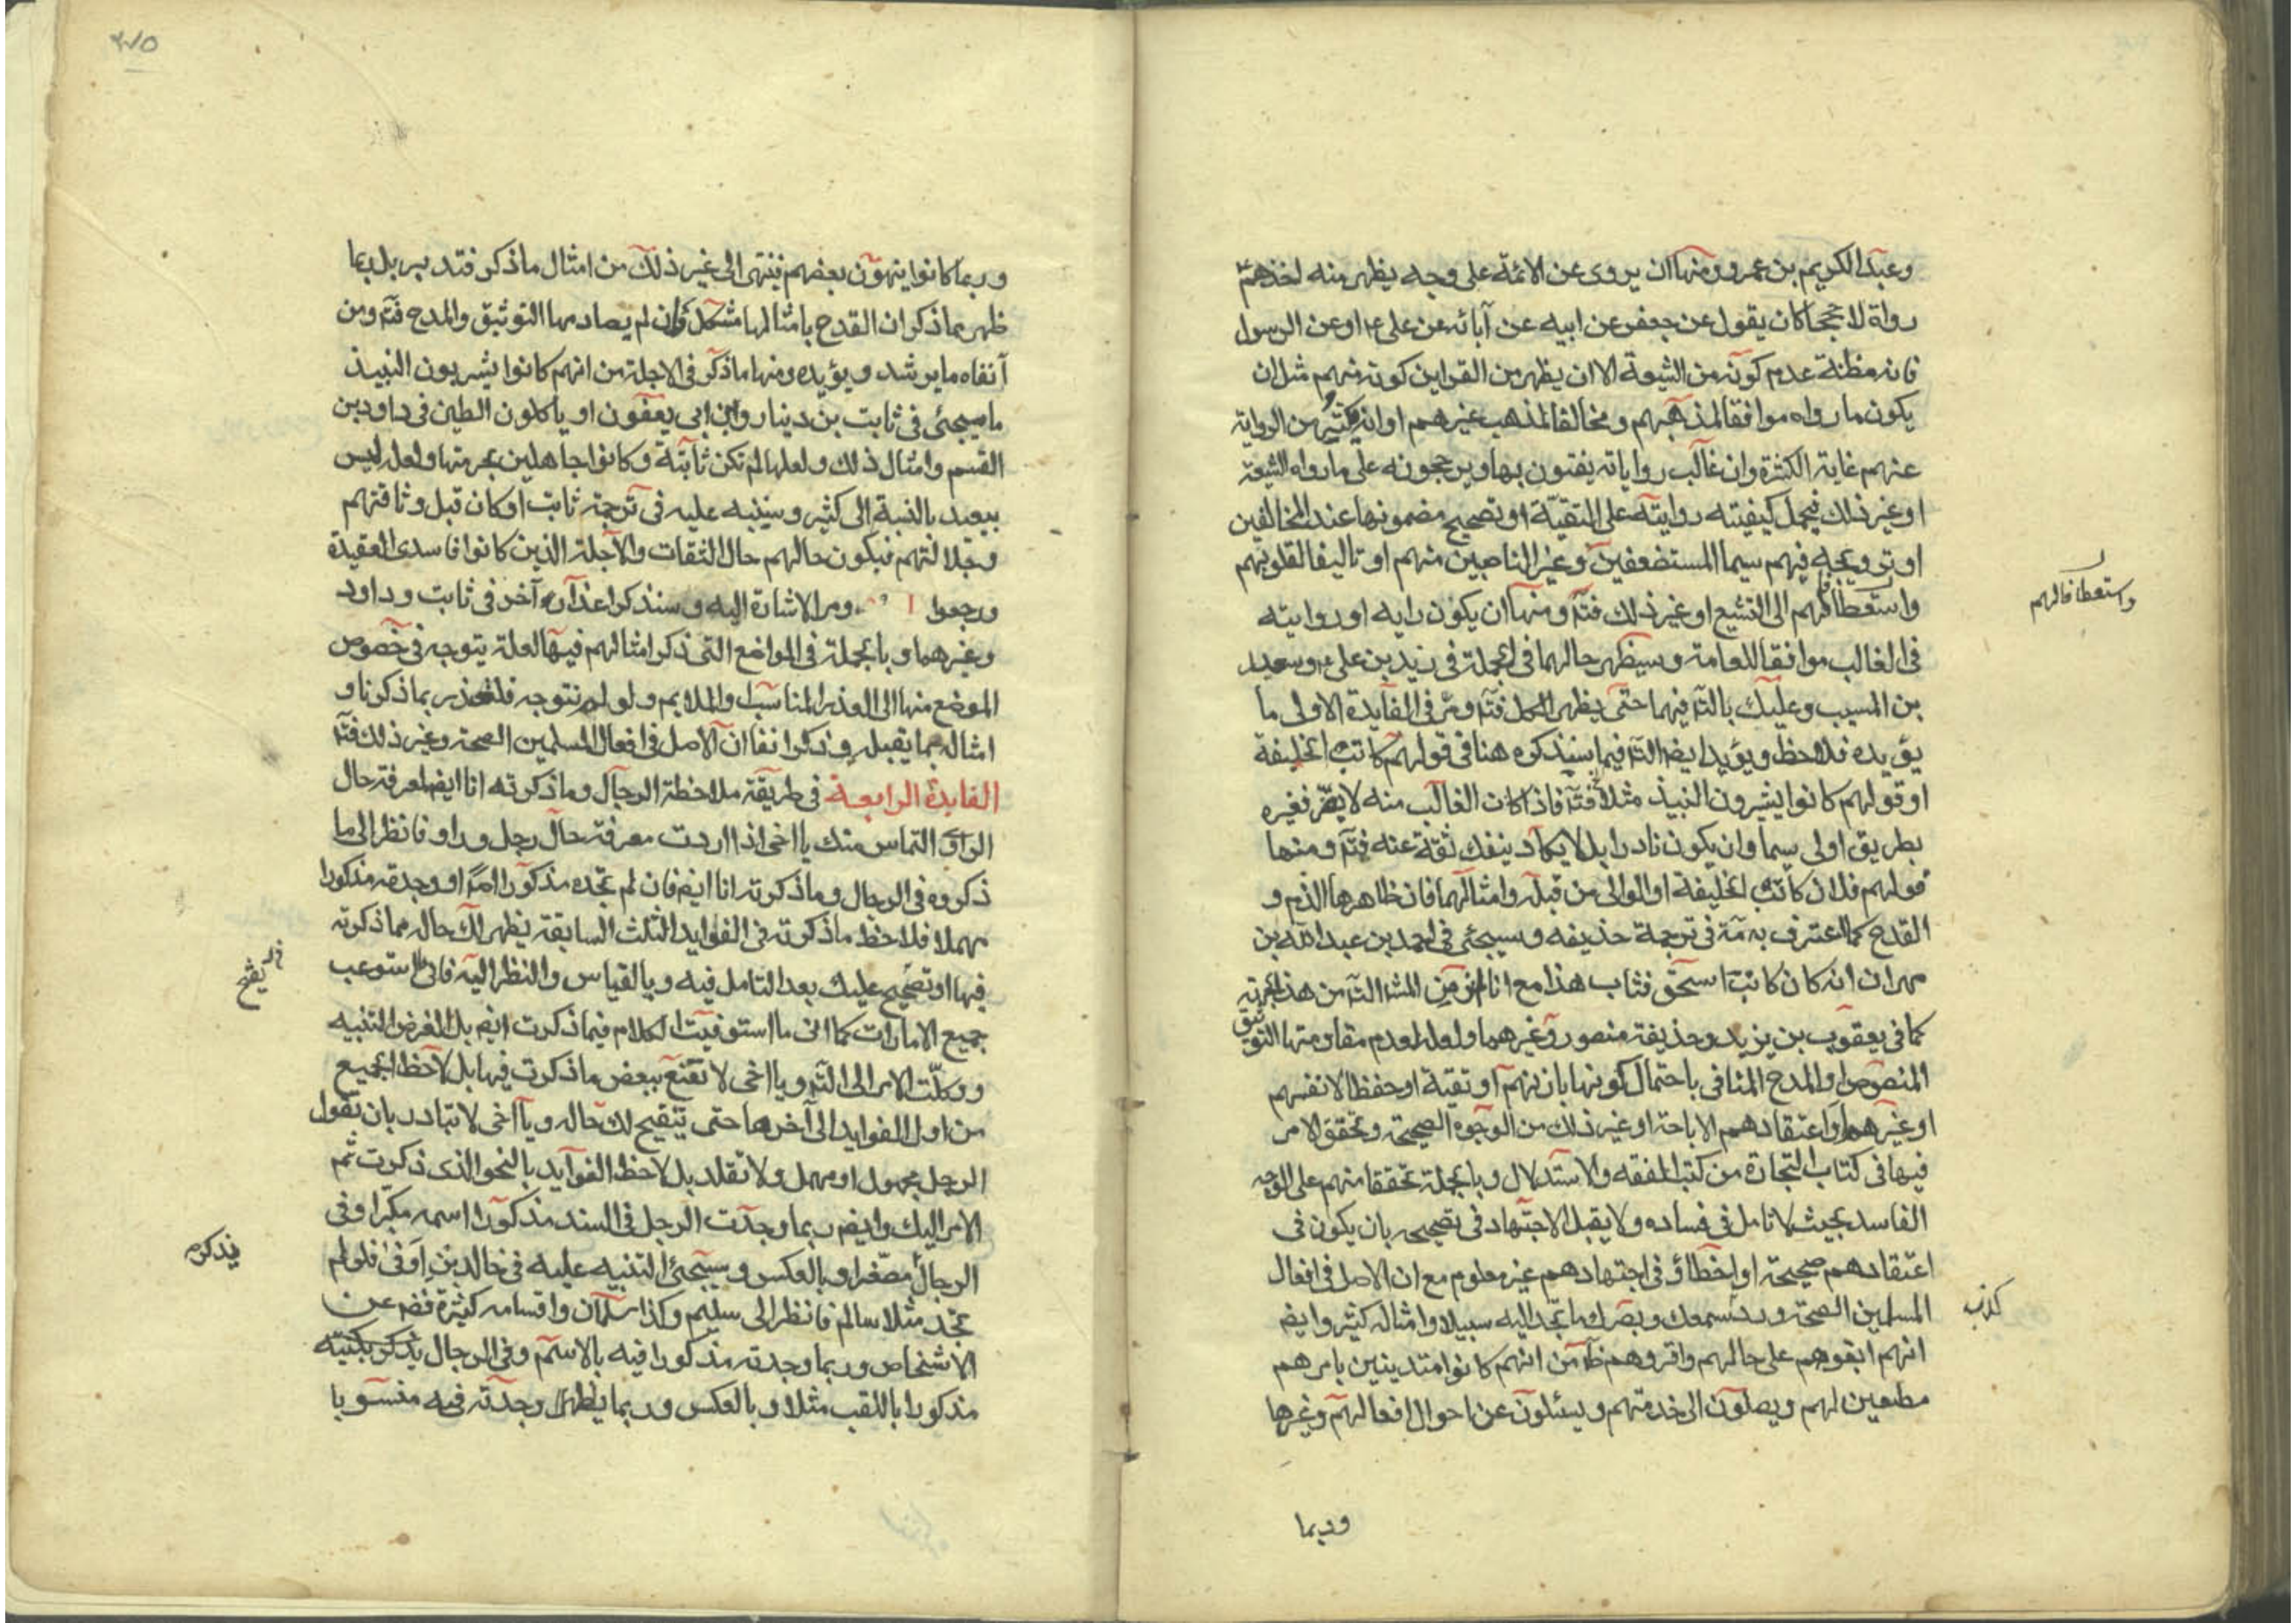 وعبد الكريم بن عمرو ومنها ان يروى عن الائمة على وجه يظهر منه اخذهم
رواة لا حججا كان يقول عن جعفر عن ابيه عن آبائه عن على ع او عن الرسول
فانه مظنة عدم كونه من الشيعة الا ان يظهر من القراين كونه منهم مثل ان
يكون ما رواه موافقا لمذهبهم ومخالفا لمذهب غيرهم او انه يكثر من الرواية
عنهم غاية الكثرة وان غالب رواياته يفتون بها ويرجحونه على ما رواه الشيعة
او غير ذلك فيحمل كيفيته روايته على التقية او تصحيح مضمونها عند المخالفين
او ترويجه فيهم سيما المستضعفين وغير الناصبين منهم او تاليفا لقلوبهم
واستعطافا لهم الى التشيع او غير ذلك فتم ومنها ان يكون رايه او روايته
واستعطافا لهم
فى الغالب موافقا للعامة وسيظهر حالهما فى الجملة فى زيد بن على ع وسعيد
بن المسيب وعليك بالتم فيهما حتى يظهر الحال فتم ومر فى الفايدة الاولى ما
يؤيده فلاحظ ويؤيد ايضا التم فيما سنذكره هنا فى قولهم كاتب الخليفة
او قولهم كانوا يشربون النبيذ مثلا فتم فاذا كان الغالب منه لا يضر فغيره
بطريق اولى سيما وان يكون نادرا بل لا يكاد ينفك ثقة عنه فتم ومنها
قولهم فلان كاتب الخليفة او الوالى من قبله وامثالهما فان ظاهرها الذم و
القدح كما اعترف به مة فى ترجمة حذيفه وسيجئ فى احمد بن عبد الله بن
مهران انه كان كاتب اسحق فتاب هذا مع انا لم نر من المش التم من هذه الجهة
كما فى يعقوب بن يزيد وحذيفة منصور وغيرهما ولعله لعدم مقاومتها التوثيق
المنصوص او المدح المنافى باحتمال كونها باذنهم او تقية او حفظا لانفسهم
او غيرهم او اعتقادهم الاباحة او غير ذلك من الوجوه الصحيحة وتحقق الامر
فيها فى كتاب التجارة من كتب الفقه والاستدلال وبالجملة تحققا منهم على الوجه
الفاسد بحيث لا تامل فى فساده ولا يقبل الاجتهاد فى تصحيحه بان يكون فى
اعتقادهم صحيحة او اخطاؤ فى اجتهادهم غير معلوم مع ان الاصل فى افعال
المسلمين الصحة ورد سمعك وبصرك ما تجد اليه سبيلا وامثاله كثير وايضا
كذب
انهم ابقوهم على حالهم واقروهم ظاهرا من انهم كانوا متدينين بامرهم
مطيعين لهم ويصلون الى خدمتهم ويسئلون عن احوال افعالهم وغيرها
وربما
٣٧٥
وربما كانوا ينهون بعضهم فينتهى الى غير ذلك من امثال ما ذكر فتدبر بل بما
ظهر مما ذكر ان القدح بامثالها مشكل وان لم يصادمها التوثيق والمدح فتم ومن
آنفا ما يرشد ويؤيده ومنها ما ذكر فى الاجلة من انهم كانوا يشربون النبيذ
ما سيجئ فى ثابت بن دينار وابن ابى يعفون او ياكلون الطين فى داود بن
القسم وامثال ذلك ولعلها لم تكن ثابتة وكانوا جاهلين بحرمتها ولعل ليس
ببعيد بالنسبة الى كثير وسننبه عليه فى ترجمة ثابت او كان قبل وثاقتهم
وجلالتهم فيكون حالهم حال الثقات والاجلة الذين كانوا فاسدى العقيدة
ورجعوا ومر الاشارة اليه وسنذكر اعذار آخر فى ثابت وداود
وغيرهما وبالجملة فى المواضع التى ذكر امثالهم فيها لعله يتوجه فى خصوص
الموضع منها الى العذر المناسب والملايم ولو لم نتوجه فلنعتذر بما ذكرنا و
امثاله مما يقبله وذكر آنفا ان الاصل فى افعال المسلمين الصحة وغير ذلك فتم
الفايدة الرابعة فى طريقة ملاحظة الرجال وما ذكرته انا ايضا لمعرفة حال
الراوى التماس منك يا اخى اذا اردت معرفة حال رجل وراو فانظر الى ما
ذكروه فى الرجال وما ذكرته انا ايضا فان لم تجده مذكورا اصلا او وجدته مذكورا
مهملا فلاحظ ما ذكرته فى الفوايد الثلث السابقة يظهر لك حاله مما ذكرته
فيها او تصحيح عليك بعد التامل فيه وبالقياس والنظر اليه فانى ما استوعب
جميع الامارات كما انى ما استوفيت الكلام فيما ذكرت ايضا بل الغرض التنبيه
ووكلت الامر الى التم ويا اخى لا تقنع ببعض ما ذكرت فيها بل لاحظ الجميع
من اول الفوايد الى آخرها حتى يتنقيح لك حاله ويا اخى لا تبادر بان تقول
الرجل مجهول او مهمل ولا تقلد بل لاحظ الفوايد بالنحو الذى ذكرت ثم
الامر اليك وايضا ربما وجدت الرجل فى السند مذكورا اسمه مكبرا وفى
الرجال مصغرا وبالعكس وسيجئ التنبيه عليه فى خالد بن اوفى فلو لم
فيذكره
تجد مثلا سالم فانظر الى سليم وكذا سلمان واقسامه كثيرة فضم عن
الاشخاص وربما وجدته مذكورا فيه بالاسم وفى الرجال يذكر بكنيته
مذكورا باللقب مثلا وبالعكس وربما يظهر وجدته فيه منسوبا